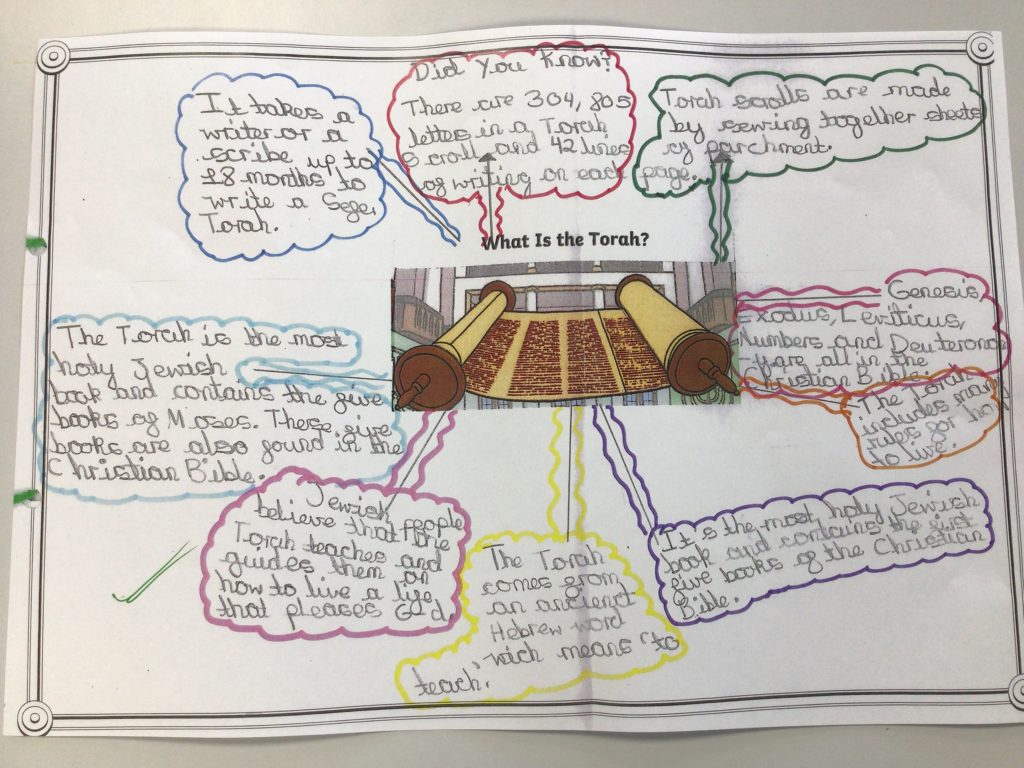 Did You Know?
There are 304, 805
lettes in a Torah
Scroll and 42 lines
of writing on each page.
It takes a
writer or a
scribe up to
18 months to
write a Sefer
Torah.
Torah scrolls are made
by sewing together sheets
of parchment.
What Is the Torah?
Genesis,
Exodus, Leviticus,
Numbers and Deuterono
-y are all in the
Christian Bible.
The Torah is the most
holy Jewish
book and contains the five
books of Moses. These five
books are also found in the
Christian Bible.
The Torah
includes man
rules for ho
to live.
Jewish people
believe that the
Torah teaches and
guides them on
how to live a life
that pleases God.
The Torah
comes from
an ancient
Hebrew word
wich means "to
teach."
It is the most holy Jewish
book and contains the first
five books of the Christian
Bible.